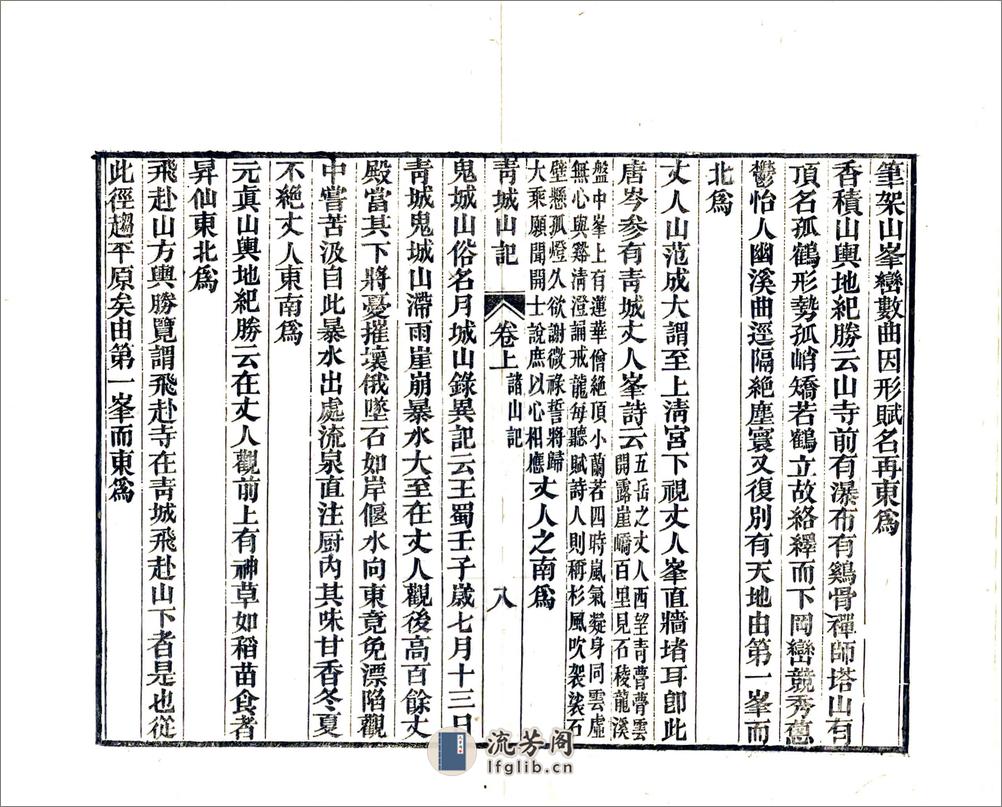 筆架山峯巒數曲因形賦名再東爲
香積山輿地紀勝云山寺前有瀑布有鷄骨禪師塔山有
頂名孤鶴形勢孤峭矯若鶴立故絡繹而下岡巒競秀蔥
鬱怡人幽溪曲逕隔絶塵寰又復別有天地由第一峯而
北爲
丈人山范成大謂至上淸宮下視丈人峯直牆堵耳卽此
唐岑參有靑城丈人峯詩云五岳之丈人西望靑瞢瞢雲
開露崖嶠百里見石稜龍溪
盤中峯上有蓮華僧絶頂小蘭若四時嵐氣凝身同雲虛
無心與谿淸澄誦戒龍每聽賦詩人則稱杉風吹袈裟石
壁懸孤燈久欲謝微祿誓將歸
大乘願聞開士說庶以心相應丈人之南爲
靑城山記 卷上 諸山記 八
鬼城山俗名月城山錄異記云王蜀壬子歲七月十三日
靑城鬼城山滯雨崖崩暴水大至在丈人觀後高百餘丈
殿當其下將憂摧壞俄墜石如岸偃水向東竟免漂陷觀
中嘗苦汲自此暴水出處流泉直注厨內其味甘香冬夏
不絶丈人東南爲
元眞山輿地紀勝云在丈人觀前上有神草如稻苗食者
昇仙東北爲
飛赴山方輿勝覽謂飛赴寺在靑城飛赴山下者是也從
此徑趨平原矣由第一峯而東爲
流芳阁
lfglib.cn